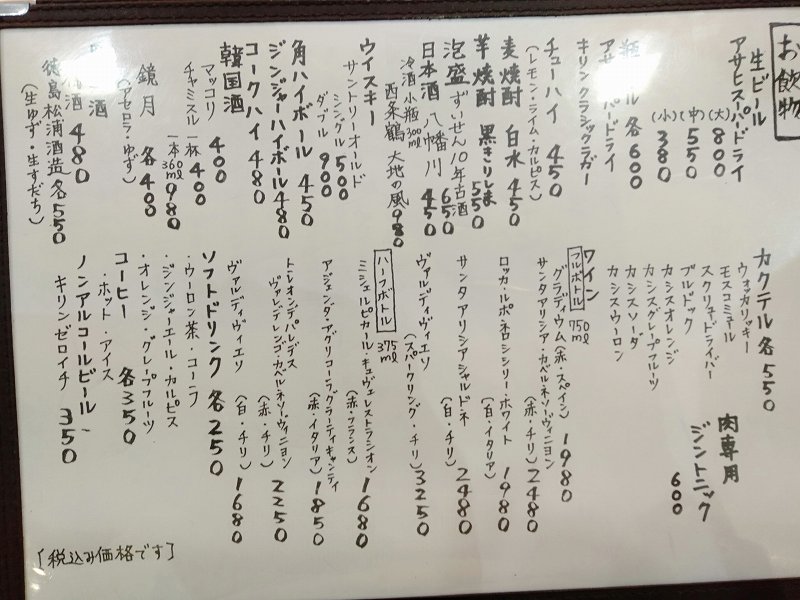 お飲物
生ビール
アサヒスーパードライ
(大) 800
(中) 550
(小) 380
ル 各600
アサ パードライ
キリンクラシックラガー
チューハイ 450
(レモン・ライム・カルピス)
麦焼酎 白水 450
芋焼酎 黒きりしま 550
泡盛 ずいせん10年古酒 650
日本酒 八幡川 450
冷酒 小瓶300ml
西条鶴 大地の風 980
ウイスキー
サントリーオールド
シングル 500
ダブル 900
角ハイボール 450
ジンジャーハイボール 480
コークハイ 480
韓国酒
マッコリ 400
チャミスル 一杯 400
一本360ml 980
鏡月 各400
(アセロラ・ゆず)
酒
酒 480
徳島松浦酒造 各550
(生ゆず・生すだち)
カクテル 各550
ウォッカリッキー
モスコミュール
スクリュードライバー
ブルドック
カシスオレンジ
カシスグレープフルーツ
カシスソーダ
カシスウーロン
肉専用
ジントニック
600
ワイン
フルボトル 750ml
グラディウム(赤・スペイン) 1980
サンタアリシア・カベルネソーヴィニヨン
(赤・チリ) 2480
ロッカルポ・ネロシシリーホワイト
(白・イタリア) 1980
サンタアリシアシャルドネ
(白・チリ) 2480
ヴァルディヴィエソ
(スパークリング・チリ) 3250
ハーフボトル 375ml
ミシェルピカールキュヴェレストラシオン
(赤・フランス) 1680
アジェンタ・アグリコーラグラーティキャンティ
(赤・イタリア) 1850
トレオンデパレデス
ヴァレデレンゴ・カベルネソーヴィニヨン
(赤・チリ) 2250
ヴァルディヴィエソ
(白・チリ) 1680
ソフトドリンク 各250
・ウーロン茶・コーラ
・ジンジャーエール・カルピス
・オレンジ・グレープフルーツ
コーヒー 各350
・ホット・アイス
ノンアルコールビール
キリンゼロイチ 350
[税込み価格です]